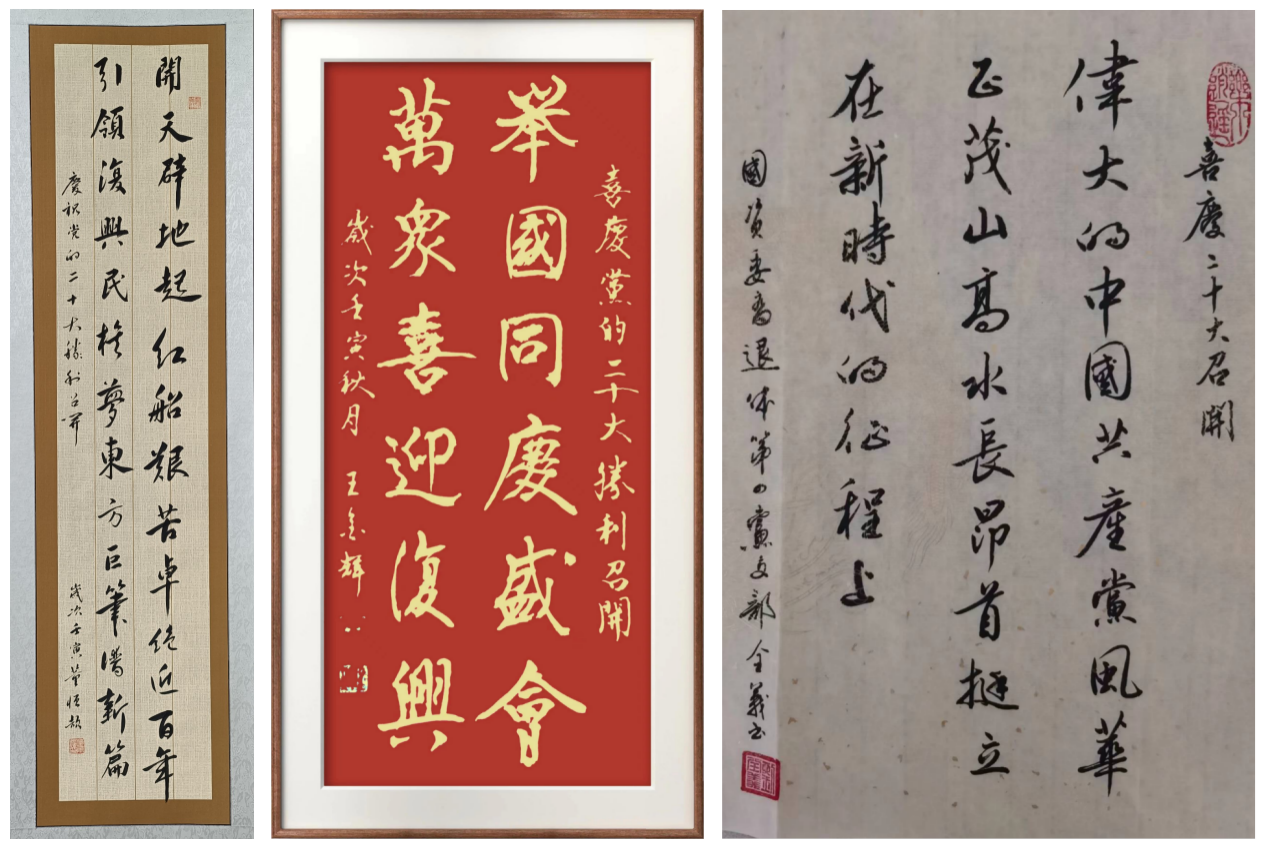 開天辟地起红船艰苦卓绝近百年
引領復興民族夢東方巨筆譜新篇
慶祝党的二十大勝利召開
歲次壬寅董恒
喜慶黨的二十大勝利召開
舉國同慶盛會
萬眾喜迎復興
歲次壬寅秋月 王金輝
喜慶二十大召開
偉大的中國共產黨風華
正茂山高水長昂首挺立
在新時代的征程上
國资委离退休第四黨支部全義书